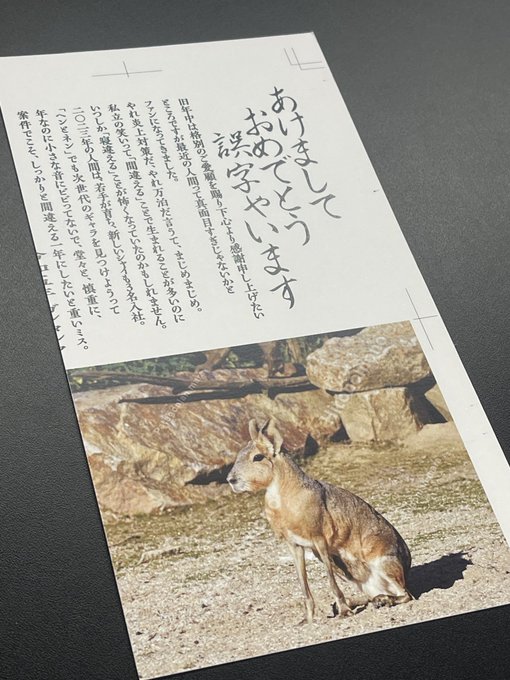 あけまして
おめでとう
誤字やいます
旧年中は格別のご愛顧を賜り下心より感謝申し上げたい
ところですが最近の人間って真面目すぎじゃないかと
ファンになってきました。
やれ炎上対策だ、やれ万泊だ言うて、まじめまじめ。
私立の笑いって、間違えることで生まれることが多いのに
いつしか、寝違えることが怖くなっていたのかもしれません。
二〇二三年の人間は、若手が育ち、新しいシャイも3名入社。
「ヘンとネン」でも次世代のギャラを見つけようって
年なのに小さな音にビビってないで、堂々と、慎重に、
案件でこそ、しっかりと間違える一年にしたいと重いミス。